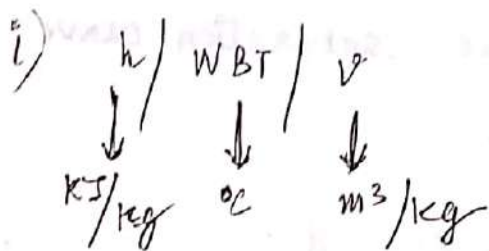 i) h / WBT / v
↓ ↓ ↓
KJ/Kg °C m³/Kg